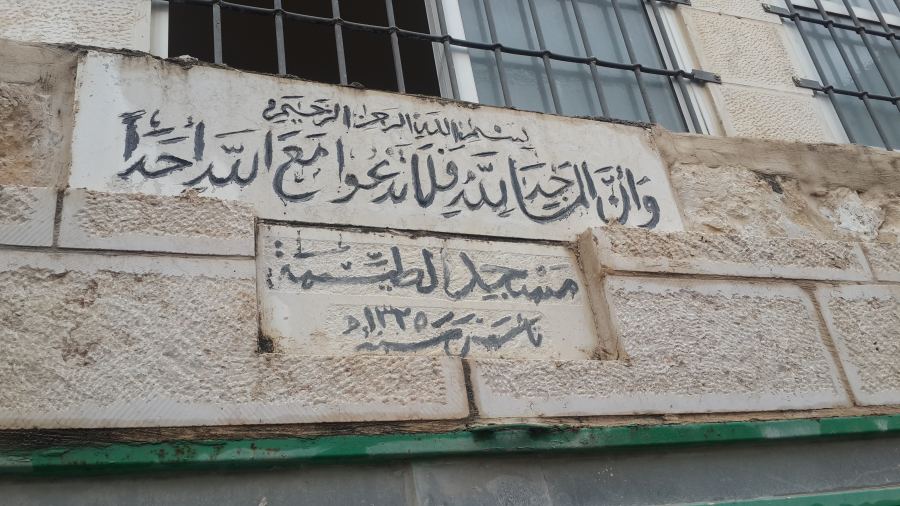 بسم الله الرحمن الرحيم
وَأَنَّ المَسَاجِدَ لِلَّهِ فَلَا تَدْعُوا مَعَ اللَّهِ أَحَداً
مسجد الطيبة
تأسس سنة ١٣٢٥ه